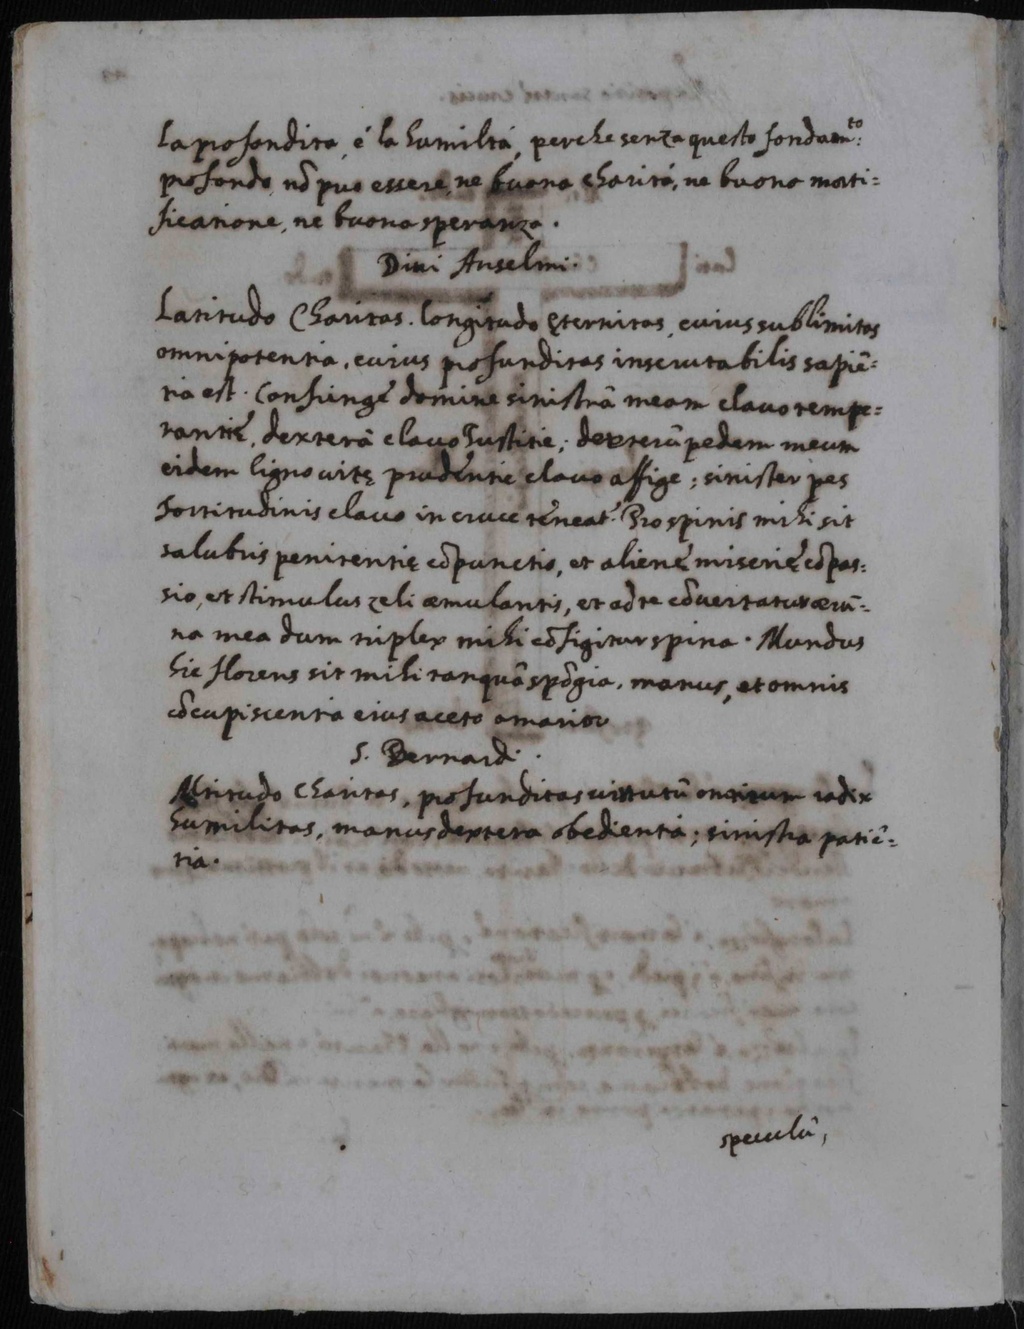 La profondita, é la humiltá, perche senza questo fondam.to
profondo, nõ puo essere, ne buona charitá, ne buona morti=
ficatione, ne buona speranza.
Divi Anselmi.
Latitudo Charitas. longitudo ęternitas, cuius sublimitas
omnipotentia, cuius profunditas inscrutabilis sapiẽ=
tia est. Confringe domine sinistrã meam clauo tempe=
rantię, dexterã clauo Iustitie; dexterũ pedem meum
eidem ligno vitę prudẽntie clauo affige; sinister pes
Fortitudinis clauo in cruce tẽneat. Pro spinis mihi sit
salubris penitentię cõpunctio, et alienę miserię cõpas=
sio, et stimulus zeli æmulantis, et ad te cõuertatur ærũ=
na mea dum triplex mihi cõfigitur spina. Mundus
hic florens sit mihi tanquã spõgia, manus, et omnis
cõcupiscentia eius aceto amarior
S. Bernardi.
Altitudo Charitas, profunditas uirtutũ omnium radix
humilitas, manus dextera obedientia; sinistra patiẽ=
tia.
speculũ,